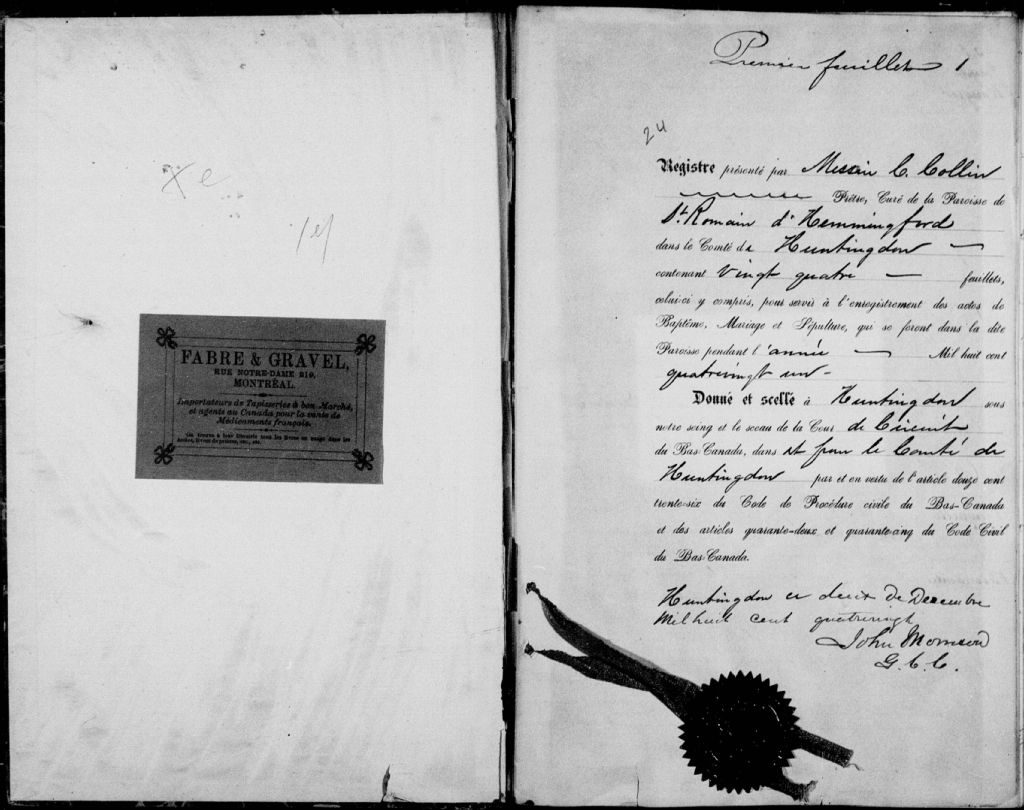 FABRE & GRAVEL,
RUE NOTRE-DAME 219,
MONTRÉAL
Importateurs de Tapisseries à bon Marché,
et agents au Canada pour la vente de
Médicaments français.
On trouve à leur librairie tous les livres en usage dans les
Premier feuillet 1
24
Registre présenté par Messire C. Collin
Prêtre, Curé de la Paroisse de
St. Romain d'Hemmingford
dans le Comté de Huntingdon —
contenant Vingt quatre — feuillets,
celui-ci y compris, pour servir à l'enregistrement des actes de
Baptême, Mariage et Sépulture, qui se feront dans la dite
Paroisse pendant l'année — Mil huit cent
quatrevingt un -
Donné et scellé à Huntingdon sous
notre seing et le sceau de la Cour de Circuit
du Bas-Canada, dans et pour le Comté de
Huntingdon par et en vertu de l'article douze cent
trente-six du Code de Procédure civile du Bas-Canada
et des articles quarante-deux et quarante-cinq du Code Civil
du Bas-Canada.
Huntingdon ce deux de Decembre
Mil huit cent quatrevingt
John Morrison
G. C. C.